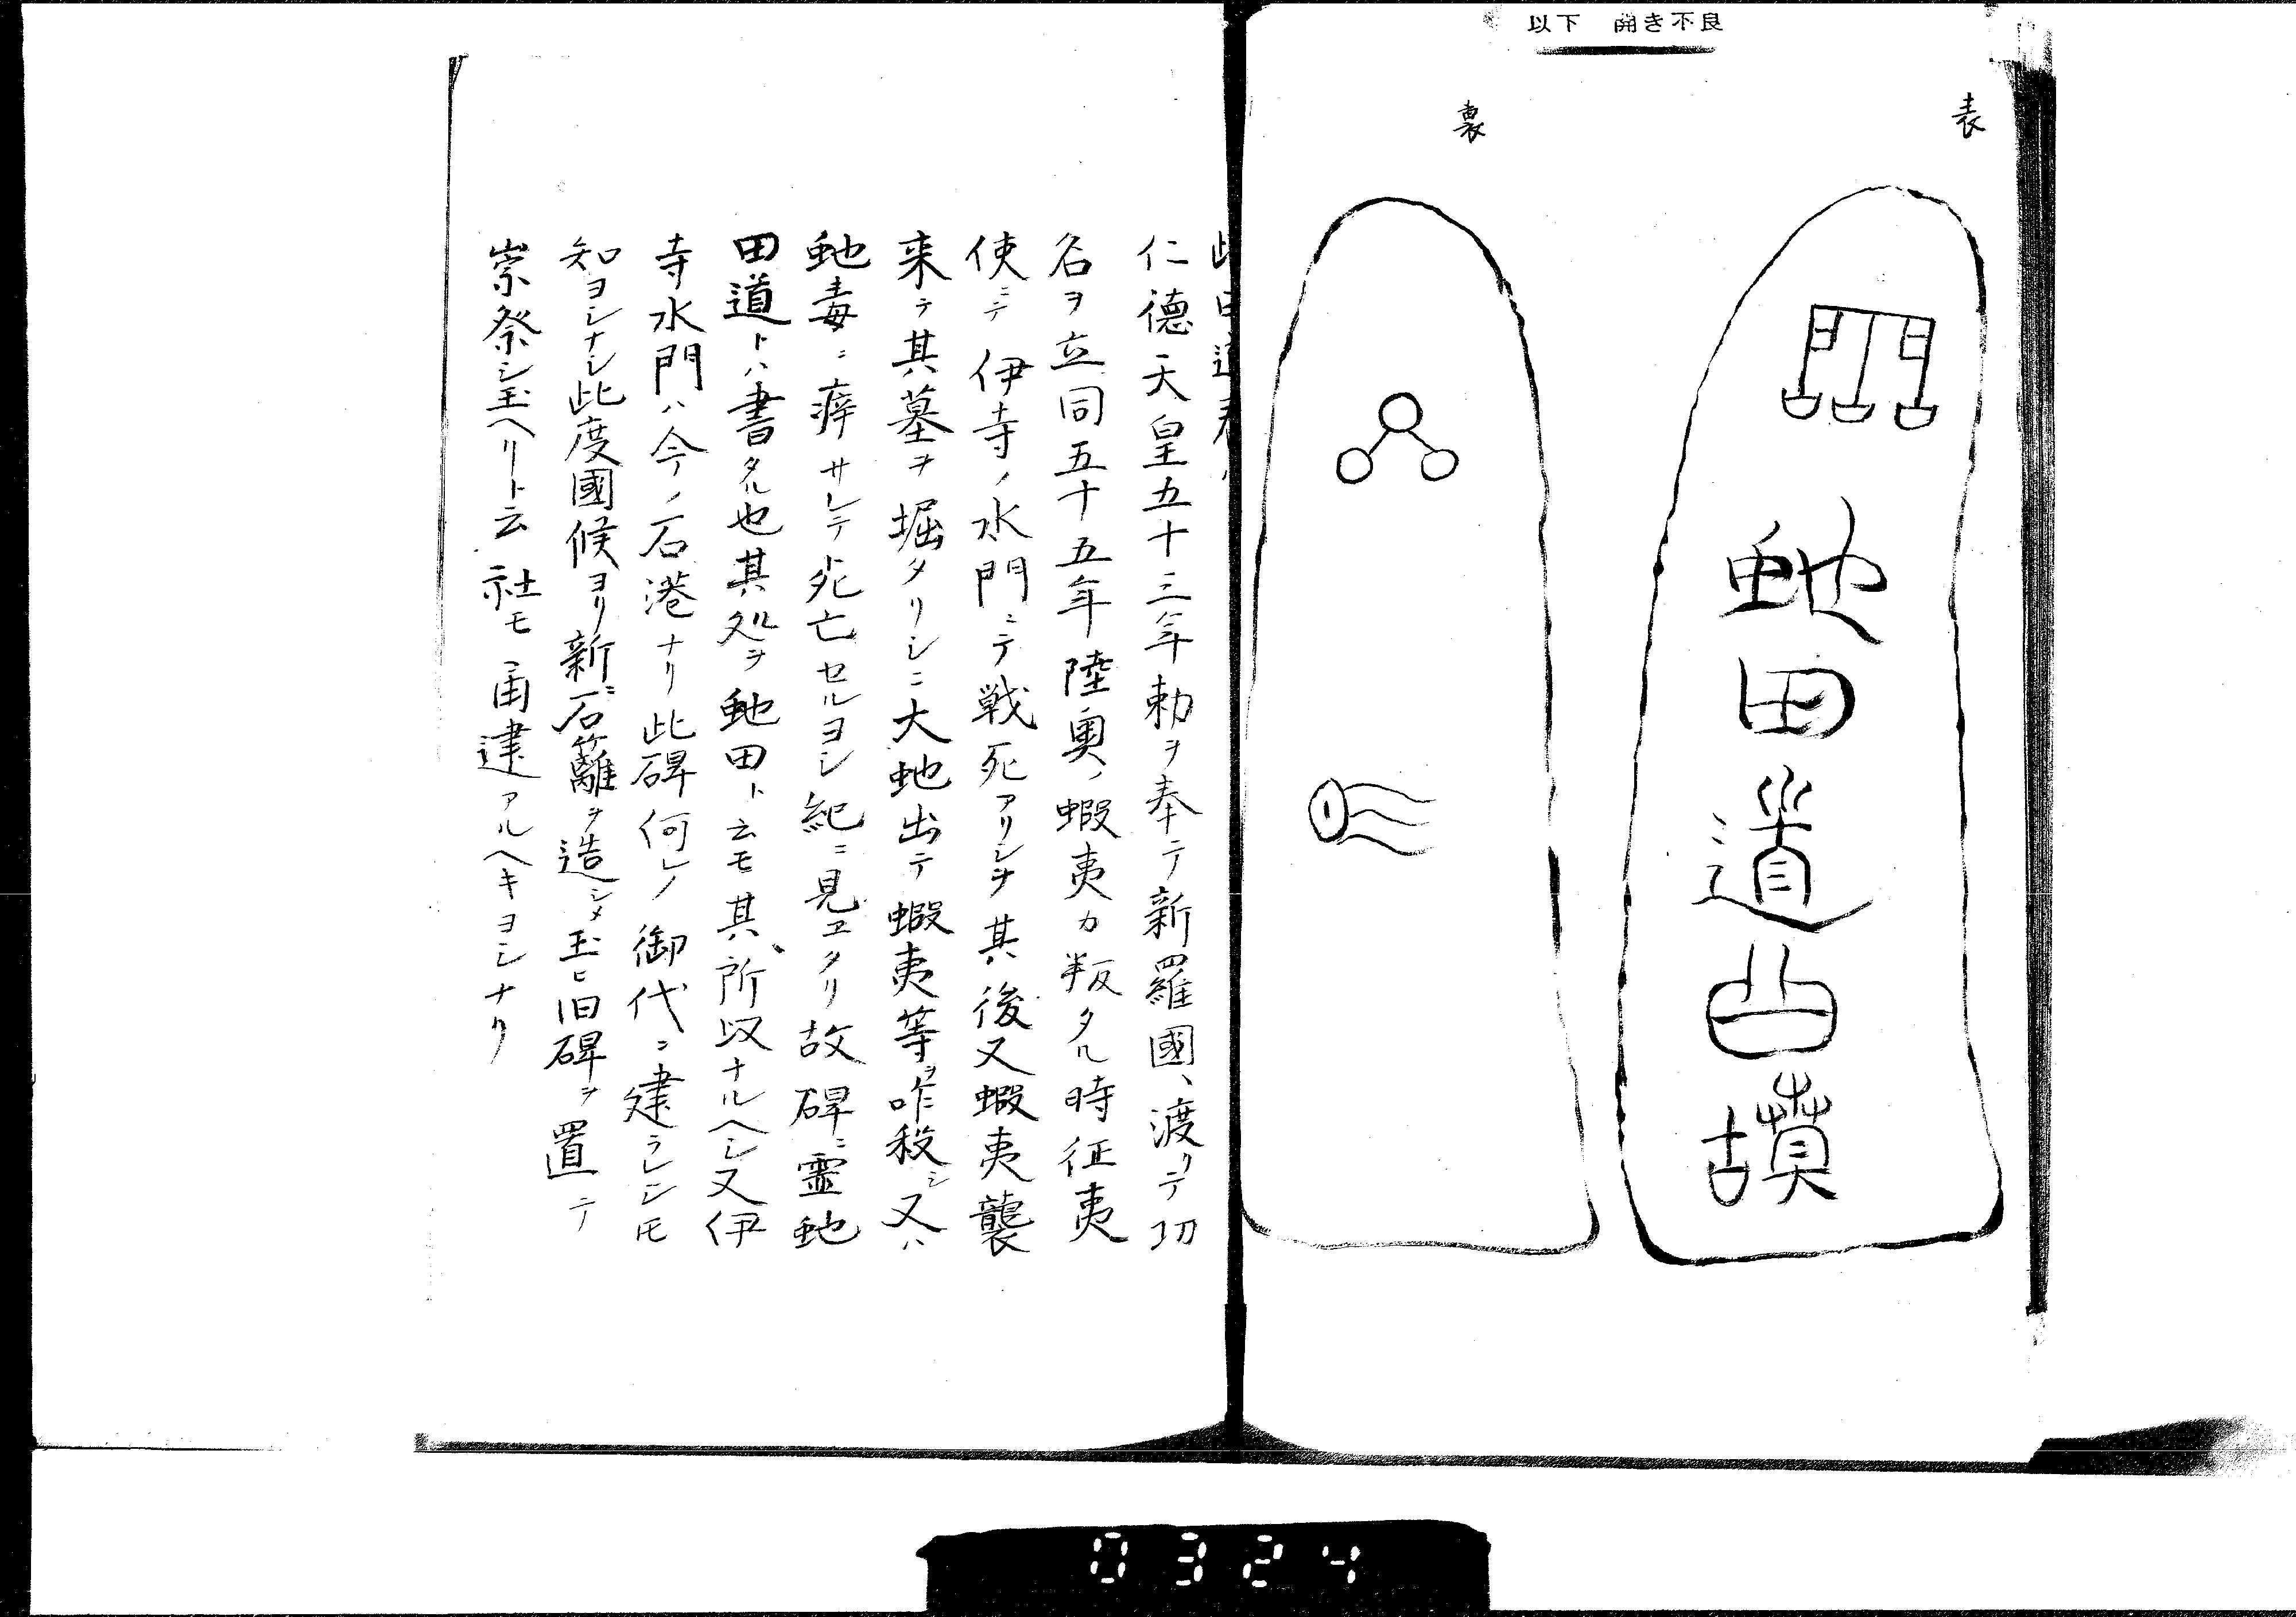 以下 開き不良
表
蛇田道公墳
裏
此田道
仁徳天皇五十三年勅ヲ奉テ新羅國ヘ渡リテ功
名ヲ立同五十五年陸奥ノ蝦夷カ叛タル時征夷
使ニテ伊寺ノ水門ニテ戦死アリシヲ其後又蝦夷襲
来テ其墓ヲ堀タリシニ大虵出テ蝦夷等ヲ咋殺シ又ハ
虵毒ニ瘁サレテ死亡セルヨシ紀ニ見ヱタリ故碑ニ霊虵
田道トハ書タル也其処ヲ虵田ト云モ其所以ナルヘシ又伊
寺水門ハ今ノ石港ナリ此碑何レノ御代ニ建ラレシモ
知ヨシナシ此度國候ヨリ新ニ石籬ヲ造シメ玉ヒ旧碑ヲ置テ
崇祭シ玉ヘリト云社モ再建アルヘキヨシナリ
0324